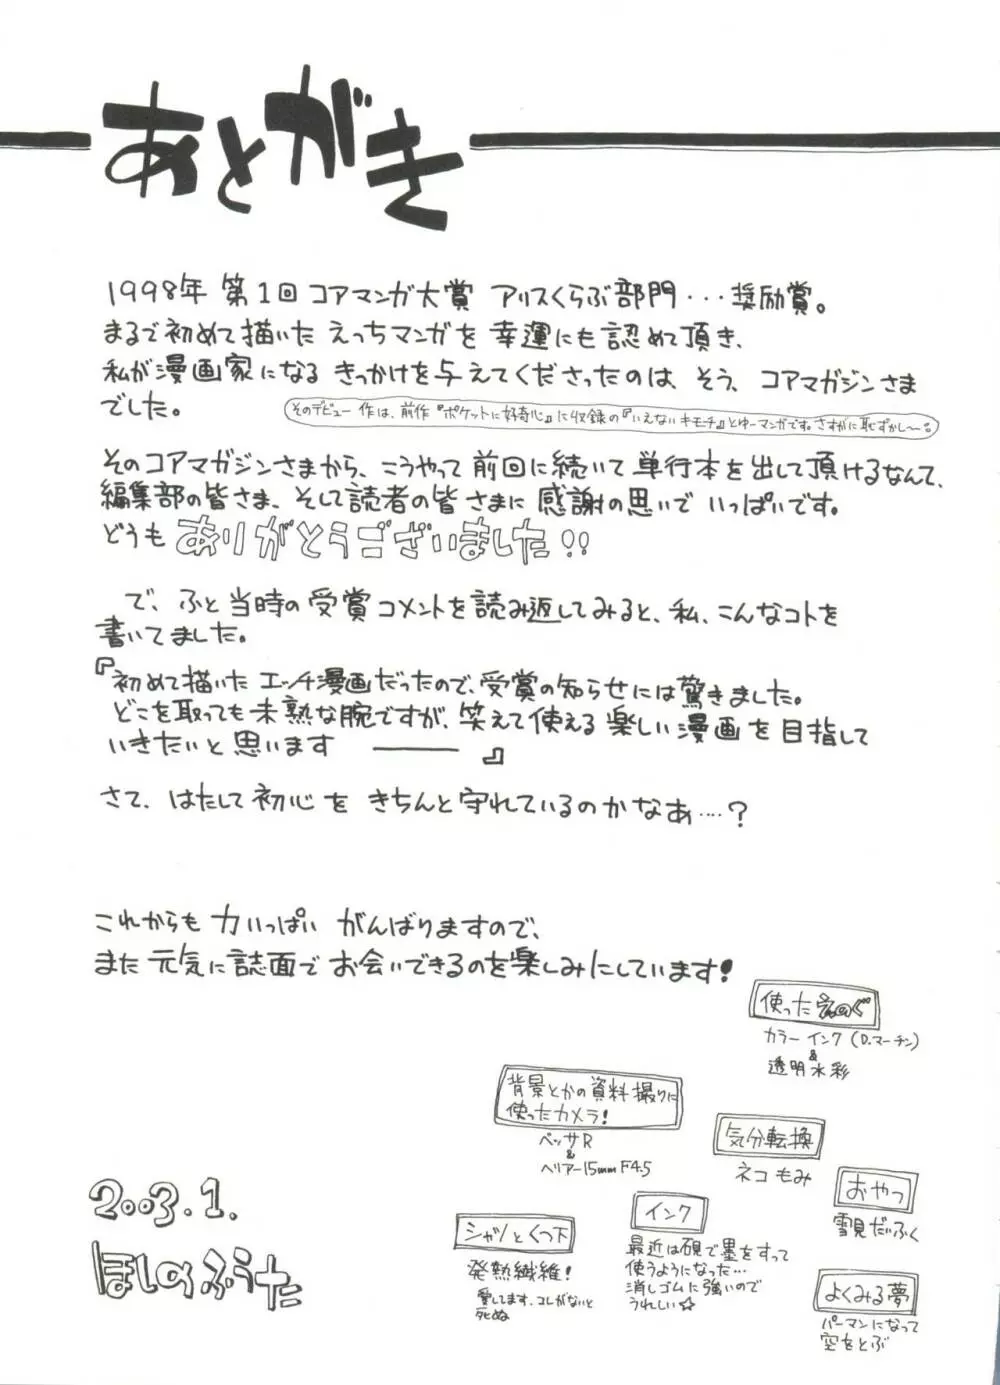 あとがき
1998年 第1回 コアマンガ大賞 アリスくらぶ部門・・・奨励賞。
まるで初めて描いた えっちマンガを 幸運にも認めて頂き、
私が漫画家になる きっかけを与えてくださったのは、そう、コアマガジンさま
でした。
そのデビュー作は、前作『ポケットに好奇心』に収録の『いえないキモチ』とゆーマンガです。さすがに恥ずかし〜。
そのコアマガジンさまから、こうやって 前回に続いて 単行本を出して頂けるなんて、
編集部の皆さま、そして読者の皆さまに 感謝の思いで いっぱいです。
どうも ありがとうございました!!
で、ふと当時の受賞コメントを読み返してみると、私、こんなコトを
書いてました。
『初めて描いた エッチ漫画だったので、受賞の知らせには驚きました。
どこを取っても未熟な腕ですが、笑えて使える 楽しい漫画を目指して
いきたいと思います ――― 』
さて、はたして初心を きちんと守れているのかなぁ‥‥?
これからも 力いっぱい がんばりますので、
また 元気に誌面で お会いできるのを楽しみにしています!
使った えのぐ
カラーインク (D.マーチン)
&
透明水彩
背景とかの資料撮りに
使ったカメラ!
ベッサR
&
ヘリアー15mm F4.5
気分転換
ネコもみ
おやつ
雪見だいふく
2003.1.
ほしのふうた
シャツとくつ下
発熱繊維!
愛してます。コレがないと
死ぬ
インク
最近は硯で墨をすって
使うようになった…
消しゴムに強いので
うれしい☆
よくみる夢
パーマンになって
空をとぶ